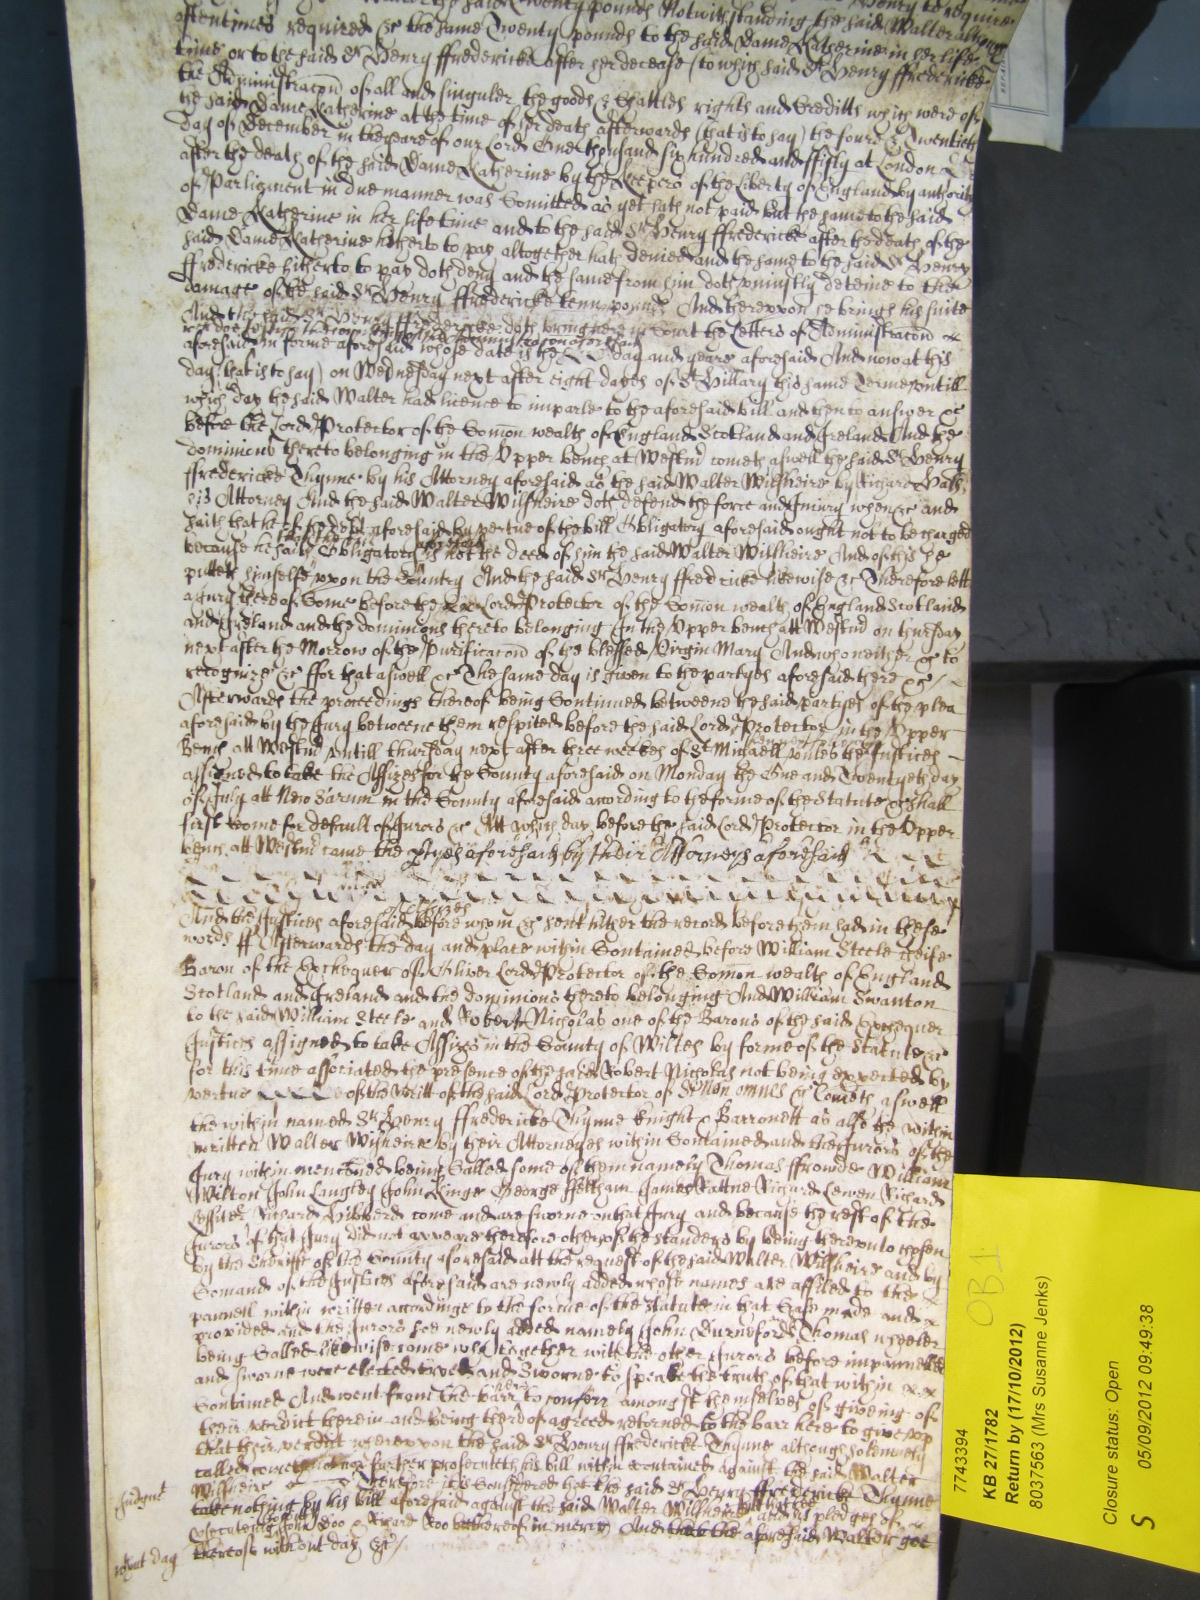 the said Twenty pounds Notwithstanding the said Walter although
oftentimes required &c the same Twenty pounds to the said Dame Katherine in her life
time or to the said Sr Henry ffredericke after her decease (to which said Sr Henry ffredericke
the Administracon of all and singuler the goods & Chattles rights and Creditts which were of
the said Dame Katherine at the time of her death afterwards (that is to say) the foure & Twentieth
day of December in the yeare of our Lord One thousand six hundred and ffifty at London
after the death of the said Dame Katherine by the Keepers of the liberty of England by authority
of Parliament in due manner was Comitted as yet hath not paid but the same to the said
Dame Katherine in her life time and to the said Sr Henry ffredericke after the death of the
said Dame Katherine hitherto to pay altogether hath denied and the same to the said Sr Henry
ffredericke hitherto to pay doth deny and the same from him doth uniustly deteine to the
damage of the said Sr Henry ffredericke Tenn pounds And thereupon he brings his suite
And the said Sr Henry ffredericke doth bring here in Court the Letters of Administracon
aforesaid in forme aforesaid whose date is the day and yeare aforesaid And now at this
day (that is to say) on Wednesday next after eight dayes of St Hillary this same Terme untill
which day the said Walter had licence to imparle to the aforesaid bill and then to answer &c
before the Lord Protector of the Comon wealth of England Scotland and Ireland And the
dominions thereto belonging in the Upper bench at Westmr cometh aswell the said Sr Henry
ffredericke Thynne by his Attorney aforesaid as the said Walter Wilsheire by Richard
his Attorney And the said Walter Wilsheire doth defend the force and Iniury when &c and
saith that he of the debt aforesaid by vertue of the bill Obligatory aforesaid ought not to be charged
because he saith Obligatory is not the deed of him the said Walter Wilsheire And of this he
putteth himselfe uppon the Country And the said Sr Henry ffredericke likewise &c Therefore lett
a Jury thereof Come before the Lord Protector of the Comon wealth of England Scotland
and Ireland and the dominions thereto belonging In the Upper bench att Westmr on thursday
next after the Morrow of the Purificacon of the blessed Virgin Mary And who neither &c to
recognize &c ffor that aswell &c The same day is given to the partyes aforesaid there &c
Afterwards the proceedings thereof being Continued betweene the said partyes of the plea
aforesaid by the Jury betweene them respited before the said Lord Protector in the Upper
Bench att Westmr untill thursday next after three weekes of St Michaell unles the Justices
assigned to take the Assizes for the County aforesaid on Monday the One and Twentyeth day
of July att New Sarum in the County aforesaid according to the forme of the Statute &c shall
first come for default of Jurors &c Att which day before the said Lord Protector in the Upper
bench att Westmr came the ptyes aforesaid by their Attorneys aforesaid
And the Justices aforesaid of Assizes before whom &c sent hither the record before them had in these
words ss Afterwards the day and place within Contained before William Steele Cheife
Baron of the Exchequer of Oliver Lord Protector of the Comon wealth of England
Scotland and Ireland and the dominions thereto belonging And William Swanton
to the said William Steele and Robert Nicholas one of the Barons of the said Exchequer
Justices assigned to take Assizes in the County of Wiltes by forme of the Statute &c
for this time associated the presence of the said Robert Nicholas not being expected by
vertue of the Writt of the said Lord Protector of Si non omnes &c Cometh aswell
the within named Sr Henry ffredericke Thynne Knight & Barronett as also the within
written Walter Wilsheire by their Attorneyes within Contained and the Jurors of the
Jury within menconed being Called some of them namely Thomas ffrowde William
Wilton John Langley John Kinge George ffeltham James Richard Lewen Richard
Richard Hibberd come and are sworne on that Jury and because the rest of the
Jurors of that Jury did not appeare therefore others of the standers by being thereunto chosen
by the Sheriffe of the County aforesaid att the request of the said Walter Wilsheire and by
Comand of the Justices aforesaid are newly added whose names are affiled to the
pannell within written accordinge to the forme of the Statute in that Case made and
provided and the Jurors soe newly added namely John Thomas wheeler
being Called likewise come who together with the other Jurors before impannelled
and sworne were elected tryed and Sworne to speake the truth of that within
Contained And went from the barr here to conferr amongst themselves of giveing of
their verdict therein and being thereof agreed retorned to the barr here to give upp
that their verdict whereupon the said Sr Henry ffredericke Thynne although solemnely
called cometh not nor further prosecuteth his bill within contained against the said Walter
Wilsheire Therefore it is Considered that the said Sr Henry ffredericke Thynne
Judgmt
take nothing by his bill aforesaid against the said Walter Wilsheire and his pledges of
John Doo & Richard Roo be thereof in mercy And the aforesaid Walter goe
wthout day
thereof without day &c
7743394
KB 27/1782
Return by (17/10/2012)
8037563 (Mrs Susanne Jenks)
OB1
Closure status: Open
S
05/09/2012 09:49:38